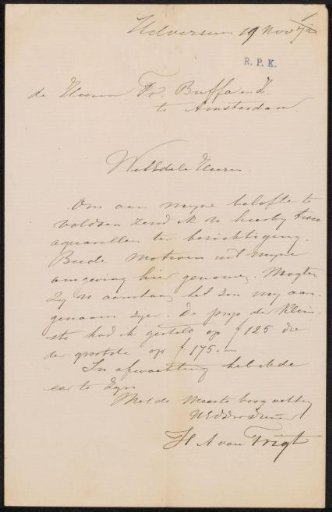 Hilversum 19 Nov
R. P. K.
de Heeren Fr. Buffa en Z
te Amsterdam
WelEdele Heeren.
Om aan mijne belofte te
voldoen zend ik de hierbij twee
aquarellen ter bezichtiging.
Beide motieven uit mijne
omgeving hier genomen. Mogten
Zij na aankoop het zou mij aan-
genaam zijn. De prijs de klein-
ste had ik gesteld op f 125 die
de grootste op f 175.–
In afwachting heb ik de
eer te zijn
Met de Meeste hoogachting
UEd dw dienaar
H A van Trigt